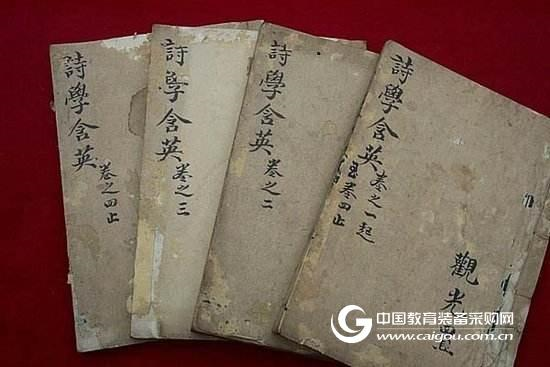 詩學含英
卷之一起
至卷四止
觀光
詩學含英
卷之二
詩學含英
卷之三
詩學含英
卷之四止
中国教育装备采购网
www.caigou.com.cn